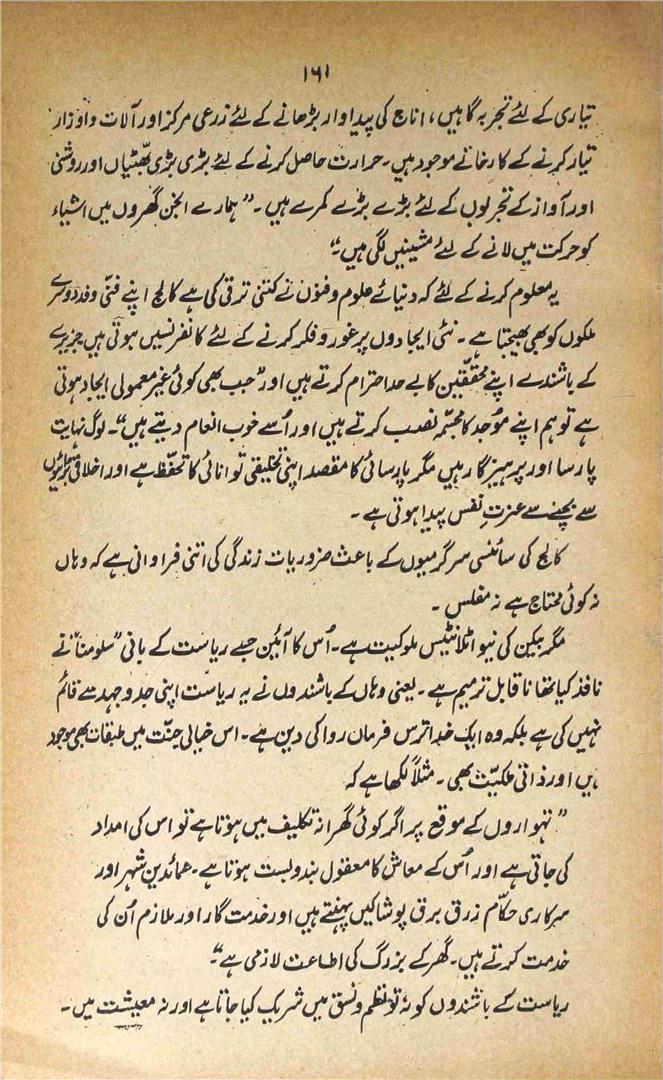 ۱۶۱
تیاری کے لئے تجربہ گاہیں، اناج کی پیداوار بڑھانے کے لئے زرعی مرکز اور آلات و اوزار
تیار کرنے کے کارخانے موجود ہیں۔ حرارت حاصل کرنے کے لئے بڑی بڑی بھٹیاں اور روشنی
اور آواز کے تجربوں کے لئے بڑے بڑے کمرے ہیں۔ "ہمارے انجن گھروں میں اشیاء
کو حرکت میں لانے کے لئے مشینیں لگی ہیں۔"
یہ معلوم کرنے کے لئے کہ دنیائے علوم و فنون نے کتنی ترقی کی ہے کالج اپنے فنّی وفد دوسرے
ملکوں کو بھی بھیجتا ہے۔ نئی ایجادوں پر غور و فکر کرنے کے لئے کانفرنسیں ہوتی ہیں جزیرے
کے باشندے اپنے محققّین کا بے حد احترام کرتے ہیں اور "جب بھی کوئی غیر معمولی ایجاد ہوتی
ہے تو ہم اپنے موُجد کا مجسّمہ نصب کرتے ہیں اور اُسے خوب انعام دیتے ہیں"۔ لوگ نہایت
پارسا اور پرہیزگار ہیں مگر پارسائی کا مقصد اپنی تخلیقی توانائی کا تحفّظ ہے اور اخلاقی برائیوں
سے بچنے سے عزتِ نفس پیدا ہوتی ہے۔
کالج کی سائنسی سرگرمیوں کے باعث ضروریات زندگی کی اتنی فراوانی ہے کہ وہاں
نہ کوئی محتاج ہے نہ مفلس۔
مگر بیکن کی نیو اٹلانٹیس ملوکیت ہے۔ اُس کا آئین جسے ریاست کے بانی "سلومنا" نے
نافذ کیا تھا ناقابل ترمیم ہے۔ یعنی وہاں کے باشندوں نے یہ ریاست اپنی جدوجہد سے قائم
نہیں کی ہے بلکہ وہ ایک خدا ترس فرماں روا کی دین ہے۔ اس خیالی جنّت میں طبقات بھی موجود
ہیں اور ذاتی ملکیّت بھی۔ مثلاً لکھا ہے کہ
"تہواروں کے موقع پر اگر کوئی گھرانہ تکلیف میں ہوتا ہے تو اس کی امداد
کی جاتی ہے اور اُس کے معاش کا معقول بندوبست ہوتا ہے۔ عمائدین شہر اور
سرکاری حکّام زرق برق پوشاکیں پہنتے ہیں اور خدمت گار اور ملازم اُن کی
خدمت کرتے ہیں۔ گھر کے بزرگ کی اطاعت لازمی ہے"۔
ریاست کے باشندوں کو نہ تو نظم و نسق میں شریک کیا جاتا ہے اور نہ معیشت میں۔